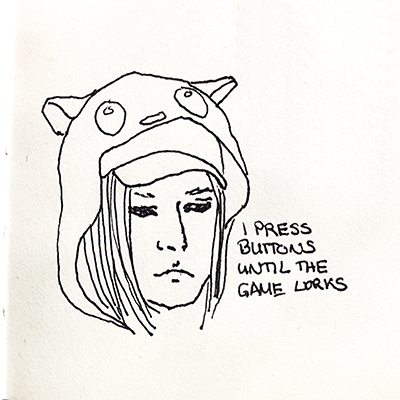 I PRESS
BUTTONS
UNTIL THE
GAME LORKS